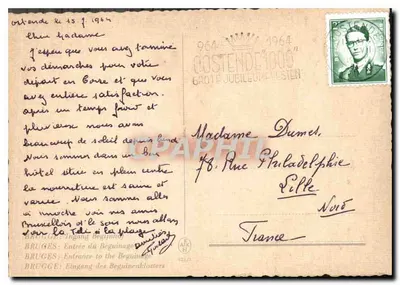 ostende le 15 7 1964
Chere Madame
J'espere que vous avez terminé
vos démarches pour votre
départ en Corse et que vous
avez entière satisfaction.
Après un temps froid et
pluvieux nous avons
beaucoup de soleil
Nous sommes dans un bon
hôtel situé en plein centre
la nourriture est saine et
variée. Nous sommes allés
voir nos amis
Bruxellois et le soir nous allons
voir la Télé à la plage
BRUGGE: Ingang Begijnhof
BRUGES: Entrée du Béguinage
BRUGES: Entrance to the Beguinage
BRÜGGE: Eingang des Beguinenklosters
964 1964
OOSTENDE 1000
GROTE JUBILEUMFEESTEN
Madame Dumez
78, Rue Philadelphie
Lille
Nord
France